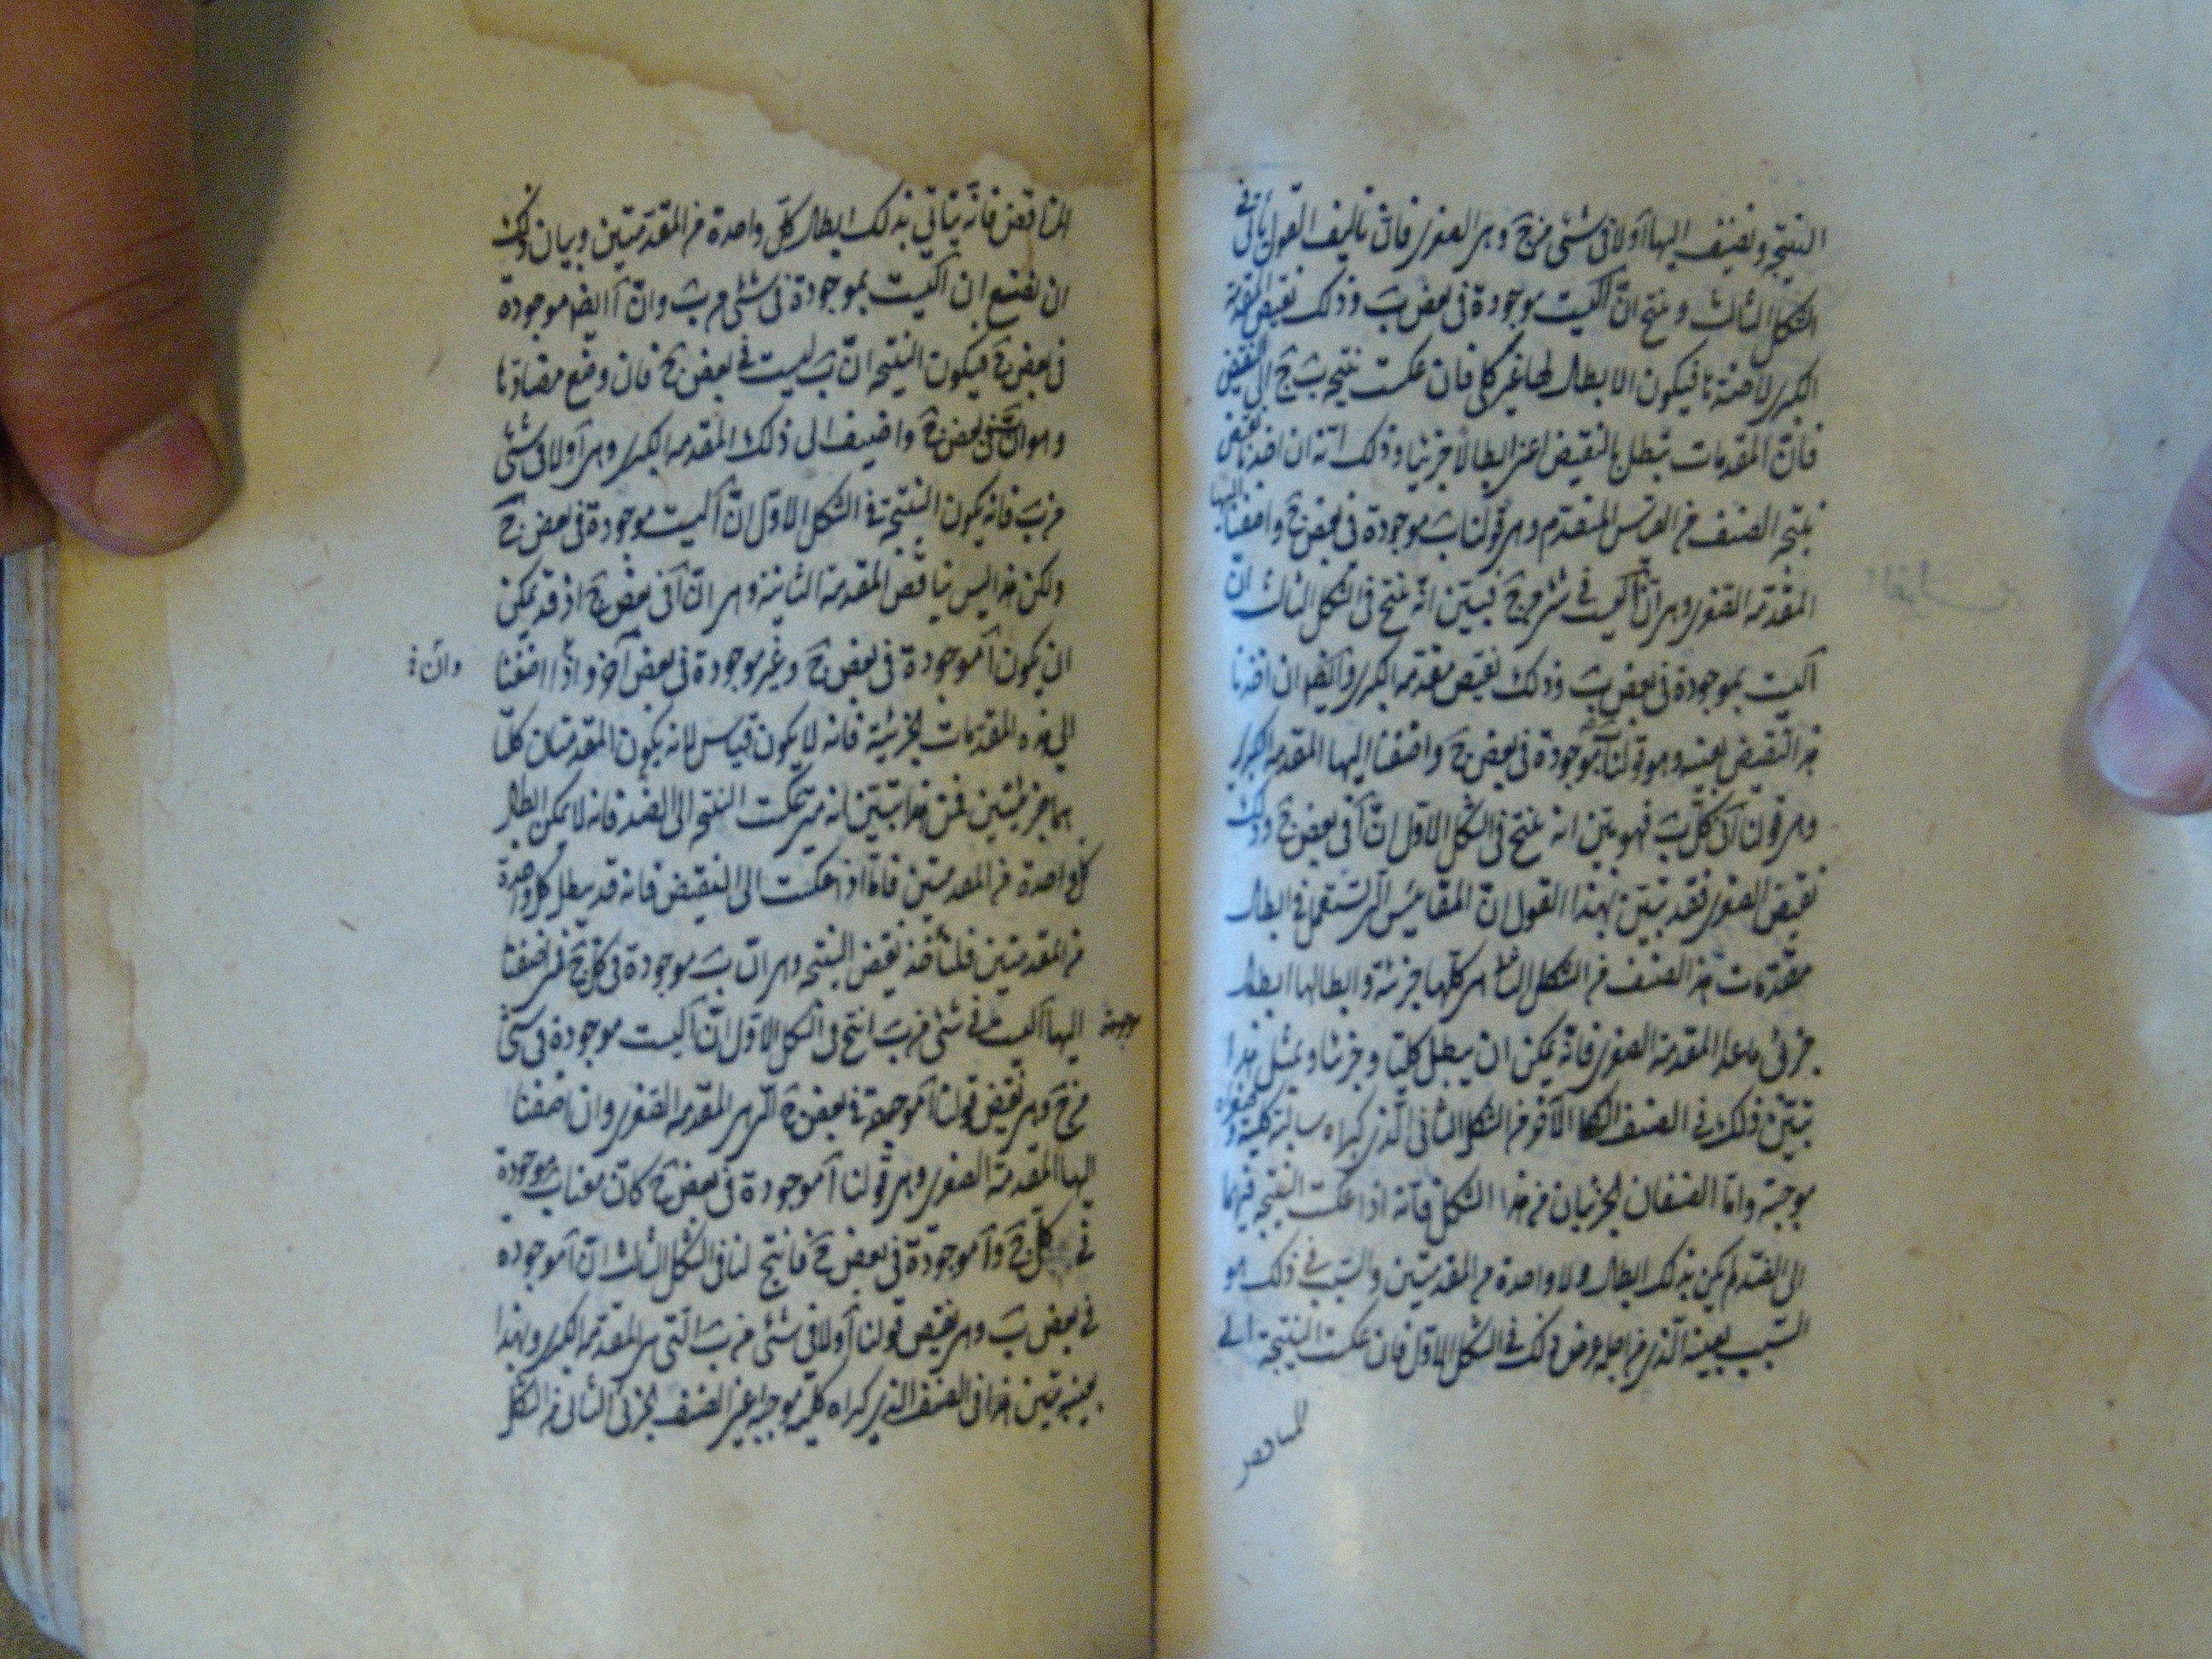 النتيجة ونضيف اليها آ ولا في شئ من ج وهي الصغرى فان تاليف القول يأتى في
الشكل الثالث وينتج ان آ ليست موجودة في بعض ب وذلك نقيض المقدمة
الكبرى لا ضدها فيكون الابطال لها غير كلي فان عكست نتيجة ب ج الى النقيض
فان المقدمات تبطل بالنقيض اعنى ابطالا جزئيا وذلك انه ان اخذنا نقيض
نتيجة الصنف من القياس المتقدم وهي قولنا ب موجودة في بعض ج واضفنا اليها
المقدمة الصغرى وهي ان آ ليست في شئ من ج فيتبين انه ينتج في الشكل الثالث ان
آ ليست بموجودة في بعض ب وذلك نقيض مقدمة الكبرى وايضا ان اخذنا
هذا النقيض بعينه وهو قولنا ب موجودة في بعض ج واضفنا اليها المقدمة الكبرى
وهي قولنا آ في كل ب فهو بين انه ينتج في الشكل الاول ان آ في بعض ج وذلك
نقيض الصغرى فقد تبين بهذا القول ان المقاييس التي تستعمل في ابطال
مقدمات هذا الصنف من الشكل الثانى هي كلها جزئية وابطالها ابطال
جزئى ما عدا المقدمة الصغرى فانه يمكن ان يبطل كليا وجزئيا وبمثل هذا
تبين ذلك في الصنف الآخر من الشكل الثانى الذى كبراه سالبة كلية وصغراه
موجبة واما الصنفان الجزئيان من هذا الشكل فانه اذا عكست النتيجة فيهما
الى الضد لم يكن بذلك ابطال ولا واحدة من المقدمتين والسبب في ذلك هو
السبب بعينه الذى من اجله عرض ذلك في الشكل الاول فان عكست النتيجة الى
المناقض
المناقض فانه يتاتى بذلك ابطال كل واحدة من المقدمتين وبيان ذلك
ان نضع ان آ ليست بموجودة في شئ من ب وان آ ايضا موجودة
في بعض ج فيكون النتيجة ان ب ليست في بعض ج فان وضع مضادتا
وهو ان ب في بعض ج واضيف الى ذلك المقدمة الكبرى وهي آ ولا في شئ
من ب فانه يكون النتيجة في الشكل الاول ان آ ليست موجودة في بعض ج
ولكن هذا ليس يناقض المقدمة الثانية وهي ان آ في بعض ج اذ قد يمكن
ان يكون آ موجودة في بعض ج وغير موجودة في بعض آخر واذا اضفنا
وان
الى هذه المقدمات الجزئية فانه لا يكون قياس لانه يكون المقدمتان كلتا
هما جزئيتين فمن هذا تبين انه متى عكست النتيجة الى الضد فانه لا يمكن ابطال
كل واحدة من المقدمتين فاما اذا عكست الى النقيض فانه قد يبطل كل واحدة
من المقدمتين فلنأخذ نقيض النتيجة وهي ان ب موجودة في كل ج فمتى اضفنا
اليها آ ليست في شئ من ب انتج في الشكل الاول ان آ ليست موجودة في شئ
موجودة
من ج وهي نقيض قولنا آ موجودة في بعض ج التى هي المقدمة الصغرى وان اضفنا
اليها المقدمة الصغرى وهي قولنا آ موجودة في بعض ج كان معنا ب موجودة
في كل ج وآ موجودة في بعض ج فانتج لنا في الشكل الثالث ان آ موجودة
في بعض ب وهي نقيض قولنا آ ولا في شئ من ب التى هي المقدمة الكبرى وبهذا
بعينه تبين هذا في الصنف الذى كبراه كلية موجبة اعنى الصنف الجزئى الثانى من الشكل